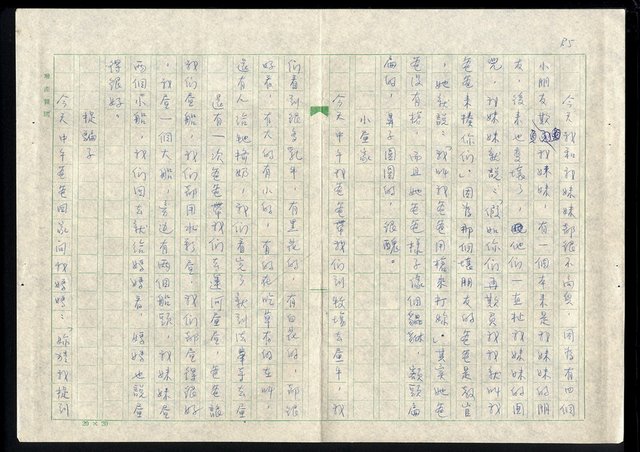 85
今天我和我妹妹都很不高興，因為有四個
小朋友欺負我妹妹，有一個本來是我妹妹的朋
友，後來也變壞了，他們一直扯我妹妹的圍
兜，我妹妹就說：「假如你們再欺負我我就叫我
爸爸來揍你們」因為那個壞朋友的爸爸是警官
，她就說：「我叫我爸爸用槍來打妳」其實她爸
爸沒有槍，而且她爸爸樣子像個
扁的，鼻子圓圓的，很醜。
小畫家
今天中午我爸爸帶我們到牧場去畫牛，我
們看到很多乳牛，有黑花的，有白花的，都很
好看，有大的有小的，有的在吃草有的在叫，
還有人給牠擠奶，我們看完了就到
還有一次爸爸帶我們去運河畫畫，爸爸說
我們都用水彩畫，我們都畫得很好
，我畫一個大船，旁邊有兩個船頭，我妹妹畫
兩個小船，我們回去就給媽媽看，媽媽也說畫
得很好。
捉騙子
今天中午爸爸回家問我媽媽：「妳猜我捉到
20×20